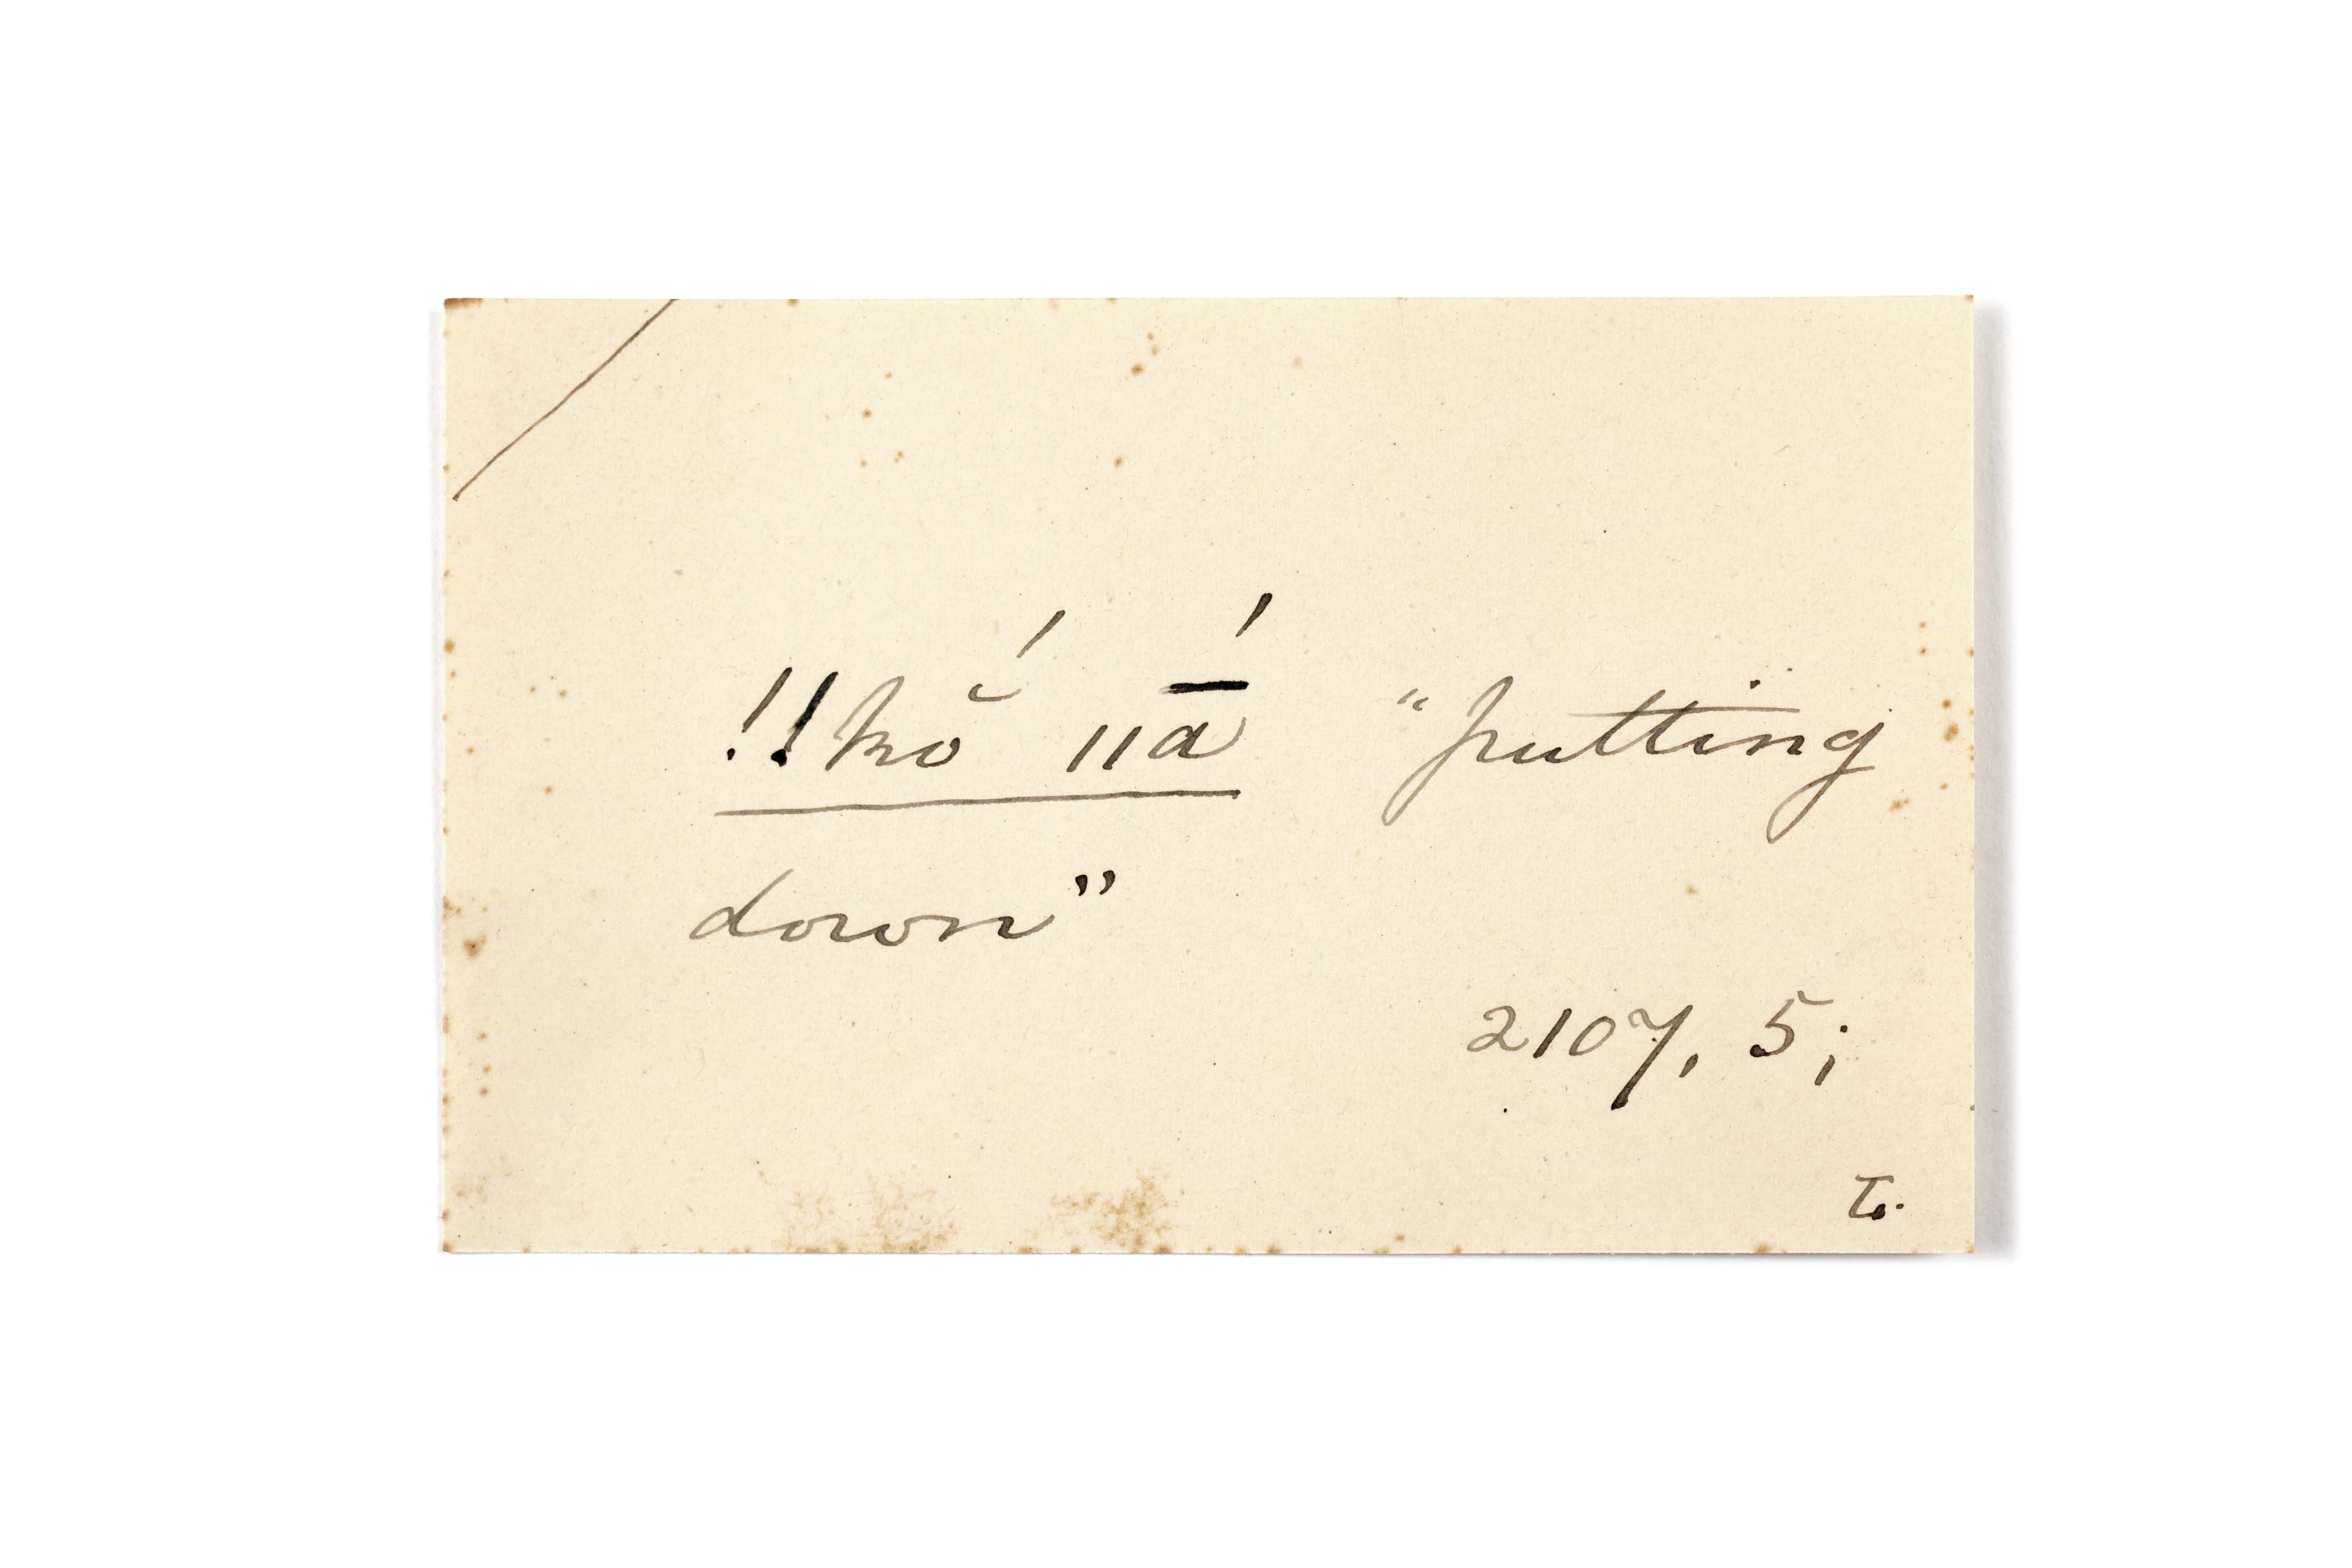 !!kŏ́ ııā́ “putting
down”
2107, 5;
T.